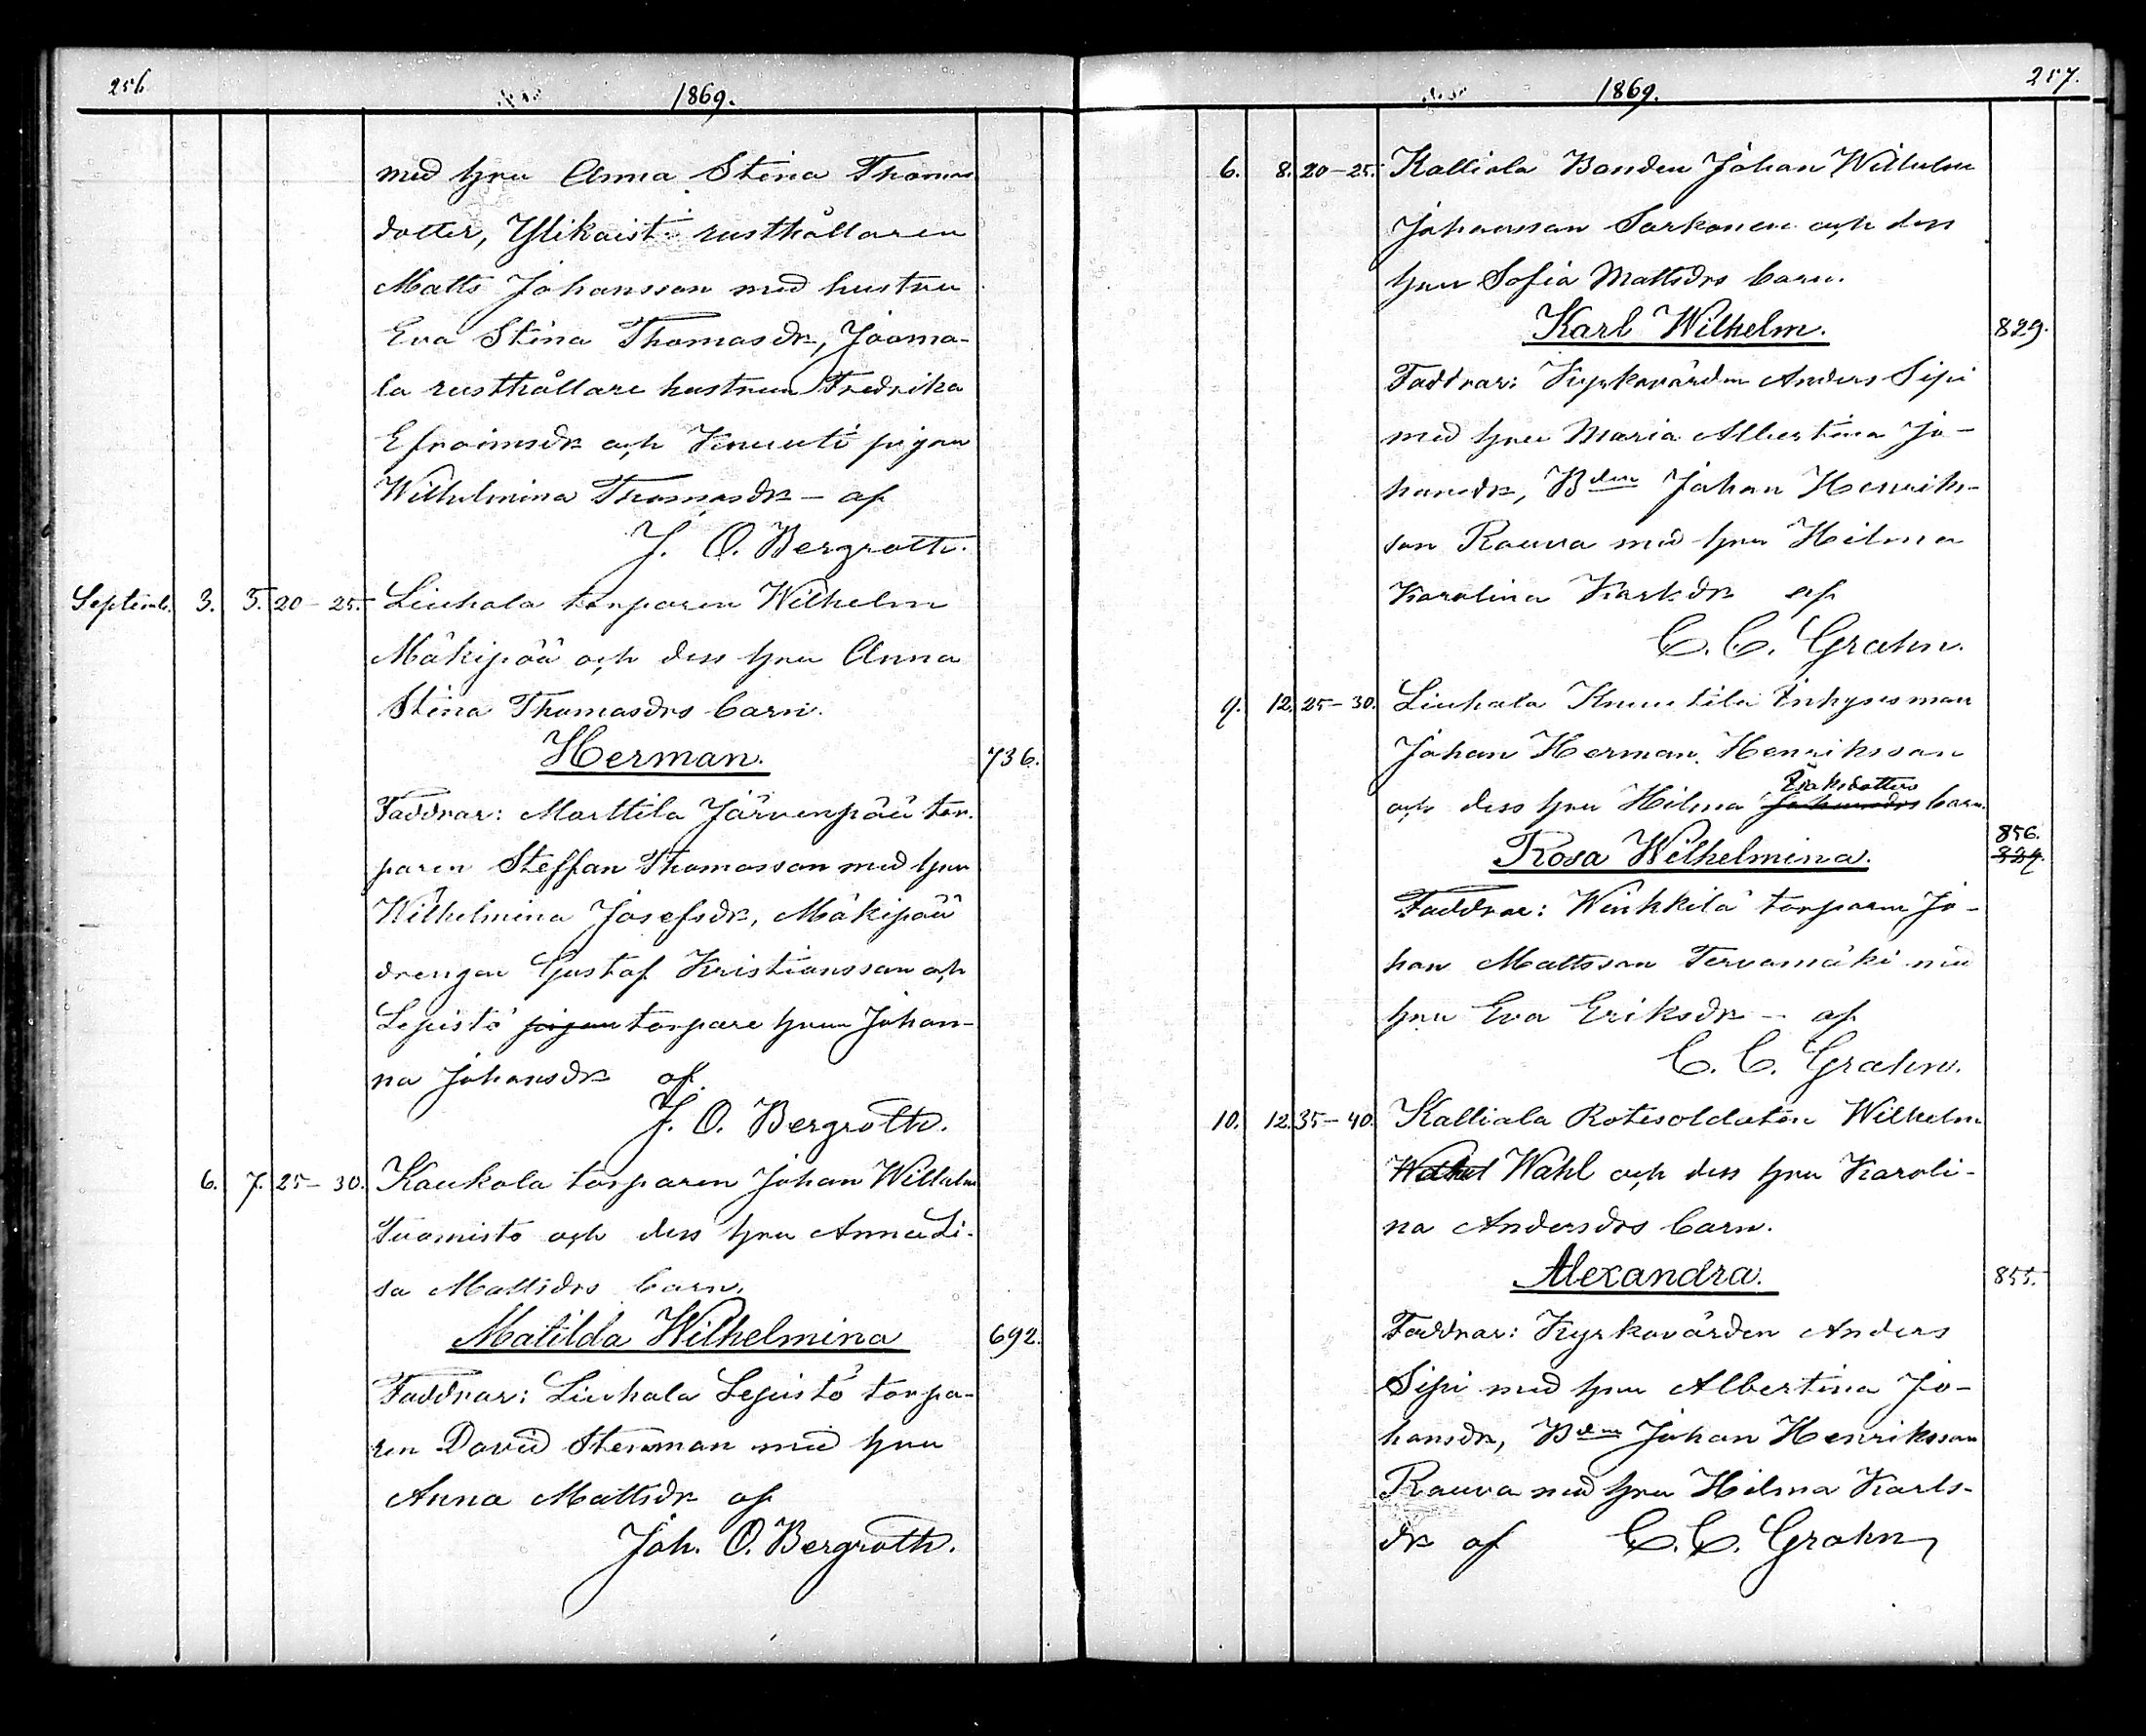 256
1869.
med hru Anna Stina Thomas
dotter, Ylikaisti rusthållaren
Matts Johansson med hustru
Eva Stina Thomasdr, Jooma-
la rusthållare hustrun Fredrika
Efraimsdr och Knuuti pigan
Wilhelmina Thomasdr – af
J. O. Bergroth.
Septemb. 3. 5. 20 – 25. Liuhala torparen Wilhelm
Mäkipää och dess hru Anna
Stina Thomasdrs barn.
Herman. 736.
Faddrar: Marttila Järvenpää tor-
paren Steffan Thomasson med hru
Wilhelmina Josefsdr, Mäkipää
drengen Gustaf Kristiansson och
Lepistö pigan torpare hrun Johan-
na Johansdr af.
J. O. Bergroth.
6. 7. 25 – 30. Kaukola torparen Johan Wilhelm
Suomisto och dess hru Anna Li-
sa Mattsdrs barn.
Matilda Wilhelmina 692.
Faddrar: Liuhala Lepistö torpa-
ren David Stenman med hru
Anna Mattsdr af
Joh. O. Bergroth.
257.
1869.
6. 8. 20 – 25. Kalliala Bonden Johan Wilhelm
Johansson Sarkonen och dess
hru Sofia Mattsdrs barn.
Karl Wilhelm. 829.
Faddrar: Kyrkovärden Anders Sipi
med hru Maria Albertina Jo-
hansdr, Bden Johan Henriks-
son Rauva med hru Hilma
Karolina Karlsdr af
C. C. Grahn.
9. 12. 25 – 30. Liuhala Knuutila Inhysesman
Johan Herman Henriksson
Isaksdotters
och dess hru Hilma Johansdrs barn.
856.
Rosa Wilhelmina. 829.
Faddrar: Winhkilä torparen Jo-
han Mattsson Tervamäki med
hru Eva Eriksdr – af
C. C. Grahn.
10. 12. 35 – 40. Kalliala Rotesoldaten Wilhelm
Wahl och dess hru Karoli-
na Andersdrs barn.
Alexandra. 855.
Faddrar: Kyrkovärden Anders
Sipi med hru Albertina Jo-
hansdr, Bden Johan Henriksson
Rauva med hru Hilma Karls-
dr af C. C. Grahn